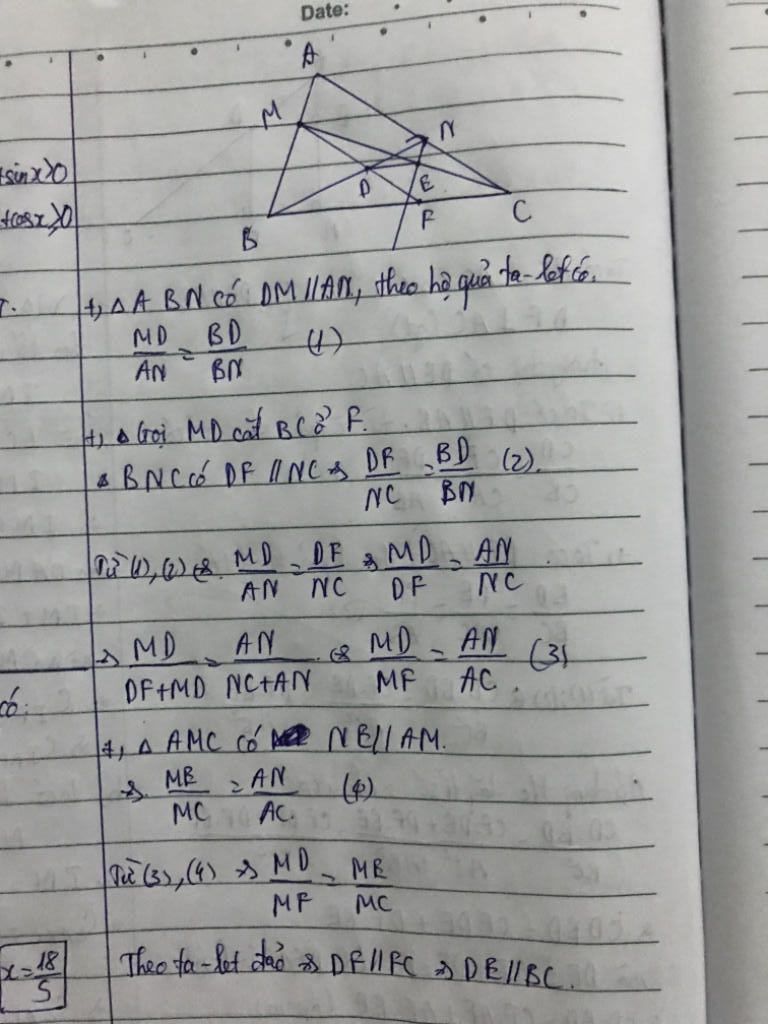 Date:
A
M
N
D
E
B
F
C
+sinx>0
+cosx>0
+, △ABN có DM // AN, theo hệ quả ta-let có.
MD/AN = BD/BN (1)
+, △ Gọi MD cắt BC ở F.
△ BNC có DF // NC => DF/NC = BD/BN (2).
Từ (1), (2) => MD/AN = DF/NC => MD/DF = AN/NC
=> MD/DF+MD = AN/NC+AN => MD/MF = AN/AC. (3)
có:
+, △ AMC có NE // AM.
=> ME/MC = AN/AC. (4)
Từ (3), (4) => MD/MF = ME/MC
x = 18/5
Theo ta-let đảo => DF // FC => DE // BC.